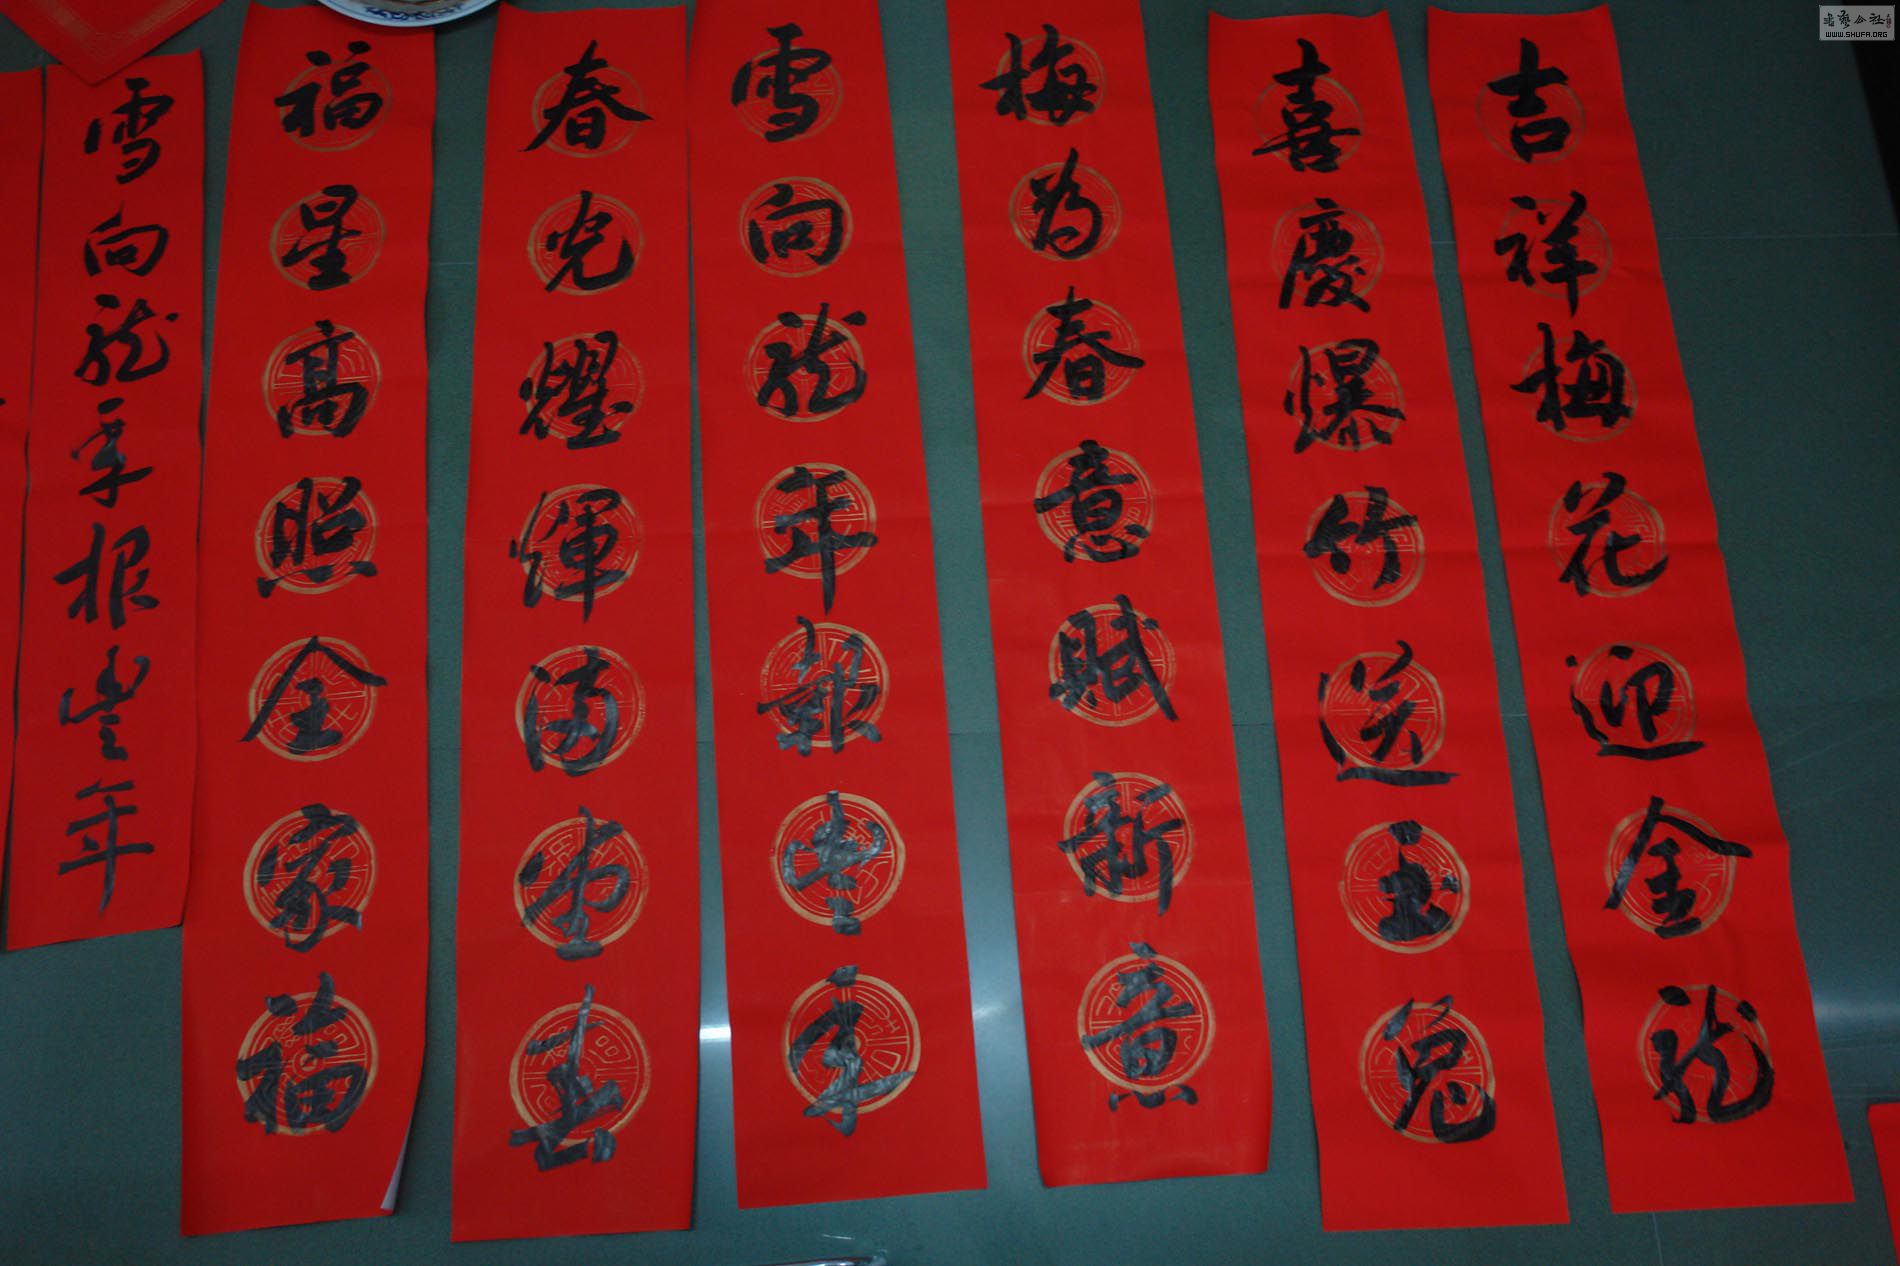 吉祥梅花迎金龍
喜慶爆竹送玉兔
梅為春意賦新意
雪向龍年報豐年
春光耀輝滿堂
福星高照全家福
雪向龍年報豐年
WWW.SHUFA.ORG